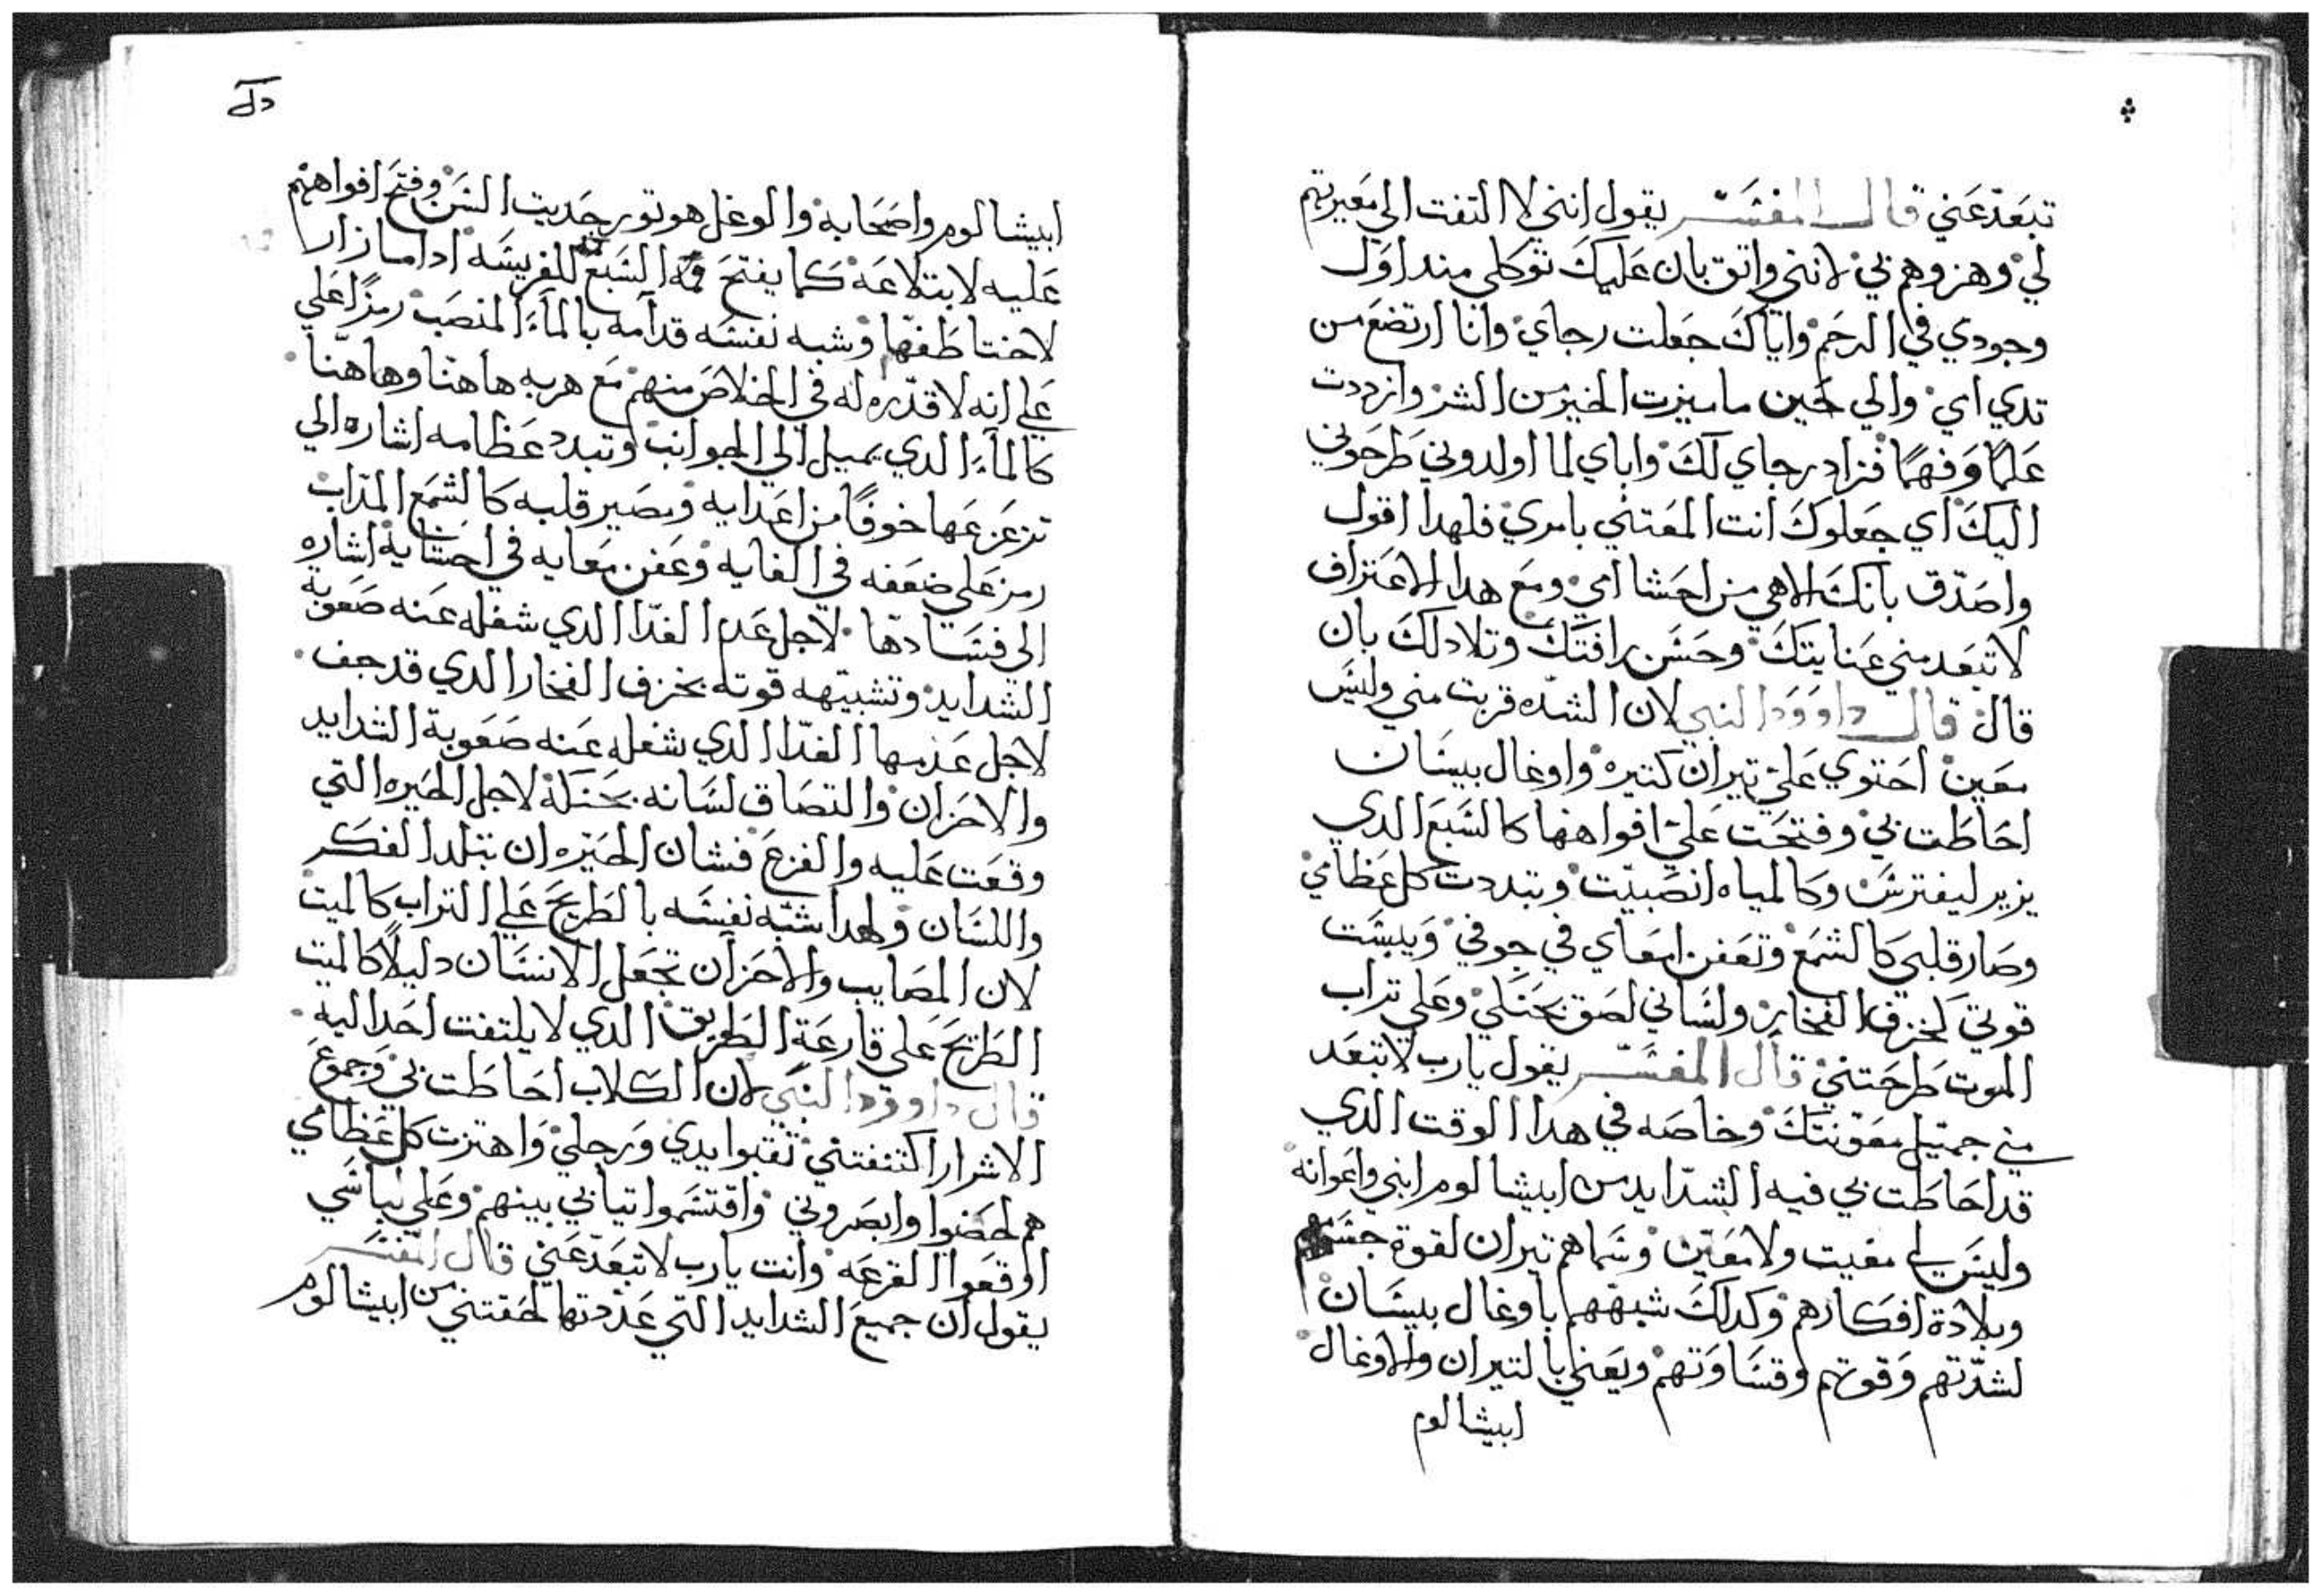 تبعد عني قال المفسر يقول انني لا التفت الي معيرتهم
لي وهزوهم بي لانني واتق بان عليك توكلي مند اول
وجودي في الرحم واياك جعلت رجاي وانا ارتضع من
تدي امي والي حين ما ميزت الخير من الشر وازددت
علمًا وفهمًا فزاد رجاي لك واباي لما اولدوني طرحوني
اليك اي جعلوك انت المعتني بامري فلهدا اقول
واصدق بانك الاهي من احشا امي ومع هدا الاعتراف
لا تبعد مني عنايتك وحسن رافتك وتلا دلك بان
قال قال داوود النبي لان الشده قربت مني وليس
معين احتوي علي تيران كتيره واوغال بيسان
احاطت بي وفتحت علي افواهها كالسبع الدي
يزير ليفترس وكالمياه انصبيت وتبددت كل عظامي
وصار قلبي كالشمع وتعفن امعاي في جوفي ويبست
قوتي كخزف الفخار ولساني لصق بحنكي وعلي تراب
الموت طرحتني قال المفسر يقول يارب لا تبعد
مني جميل معونتك وخاصه في هدا الوقت الدي
قد احاطت بي فيه الشدايد من ابيشالوم ابني واعوانه
وليس لي مغيت ولا معين وسماهم تيران لقوة جسمهم
وبلادة افكارهم وكدلك شبههم باوغال بيسان
لشدتهم وقوتهم وقساوتهم ويعني بالتيران والاوغال
ابيشالوم
دك
ابيشالوم واصحابه والوغل هو تور حديت السن وفتح افواههم
عليه لابتلاعه كما يفتح فمه السبع للفريسه ادا ما زار
لاختاطفها وشبه نفسه قدامه بالماء المنصب رمزًا علي
علي انه لا قدره له في الخلاص منهم مع هربه هاهنا وهاهنا
كالماء الدي يميل الي الجوانب وتبدد عظامه اشاره الي
تزعزعها خوفًا من اعدايه ومصير قلبه كالشمع المداب
رمز علي ضعفه في الغايه وعفن معايه في احشايه اشاره
الي فسادها لاجل عدم الغدا الدي شغله عنه صعوبة
الشدايد وتشبيهه قوته بخزف الفخار الدي قد جف
لاجل عدمها الغدا الدي شغله عنه صعوبة الشدايد
والاحزان والتصاق لسانه بحنكه لاجل الحيره التي
وقعت عليه والفزع فشان الحيره ان تبلد الفكر
واللسان ولهدا شبه نفسه بالطريح علي التراب كالميت
لان المصايب والاحزان تجعل الانسان دليلًا كالميت
الطريح علي قارعة الطريق الدي لا يلتفت احدا اليه
قال داوود النبي لان الكلاب احاطت بي وجموع
الاشرار اكتنفتني تقبوا يدي ورجلي واهتزت كل عظامي
هم لحضوا وابصروني واقتسموا تيابي بينهم وعلي لباسي
اوقعوا القرعه وانت يارب لا تبعد عني قال المفسر
يقول ان جميع الشدايد التي عددتها لحقتني من ابيشالوم